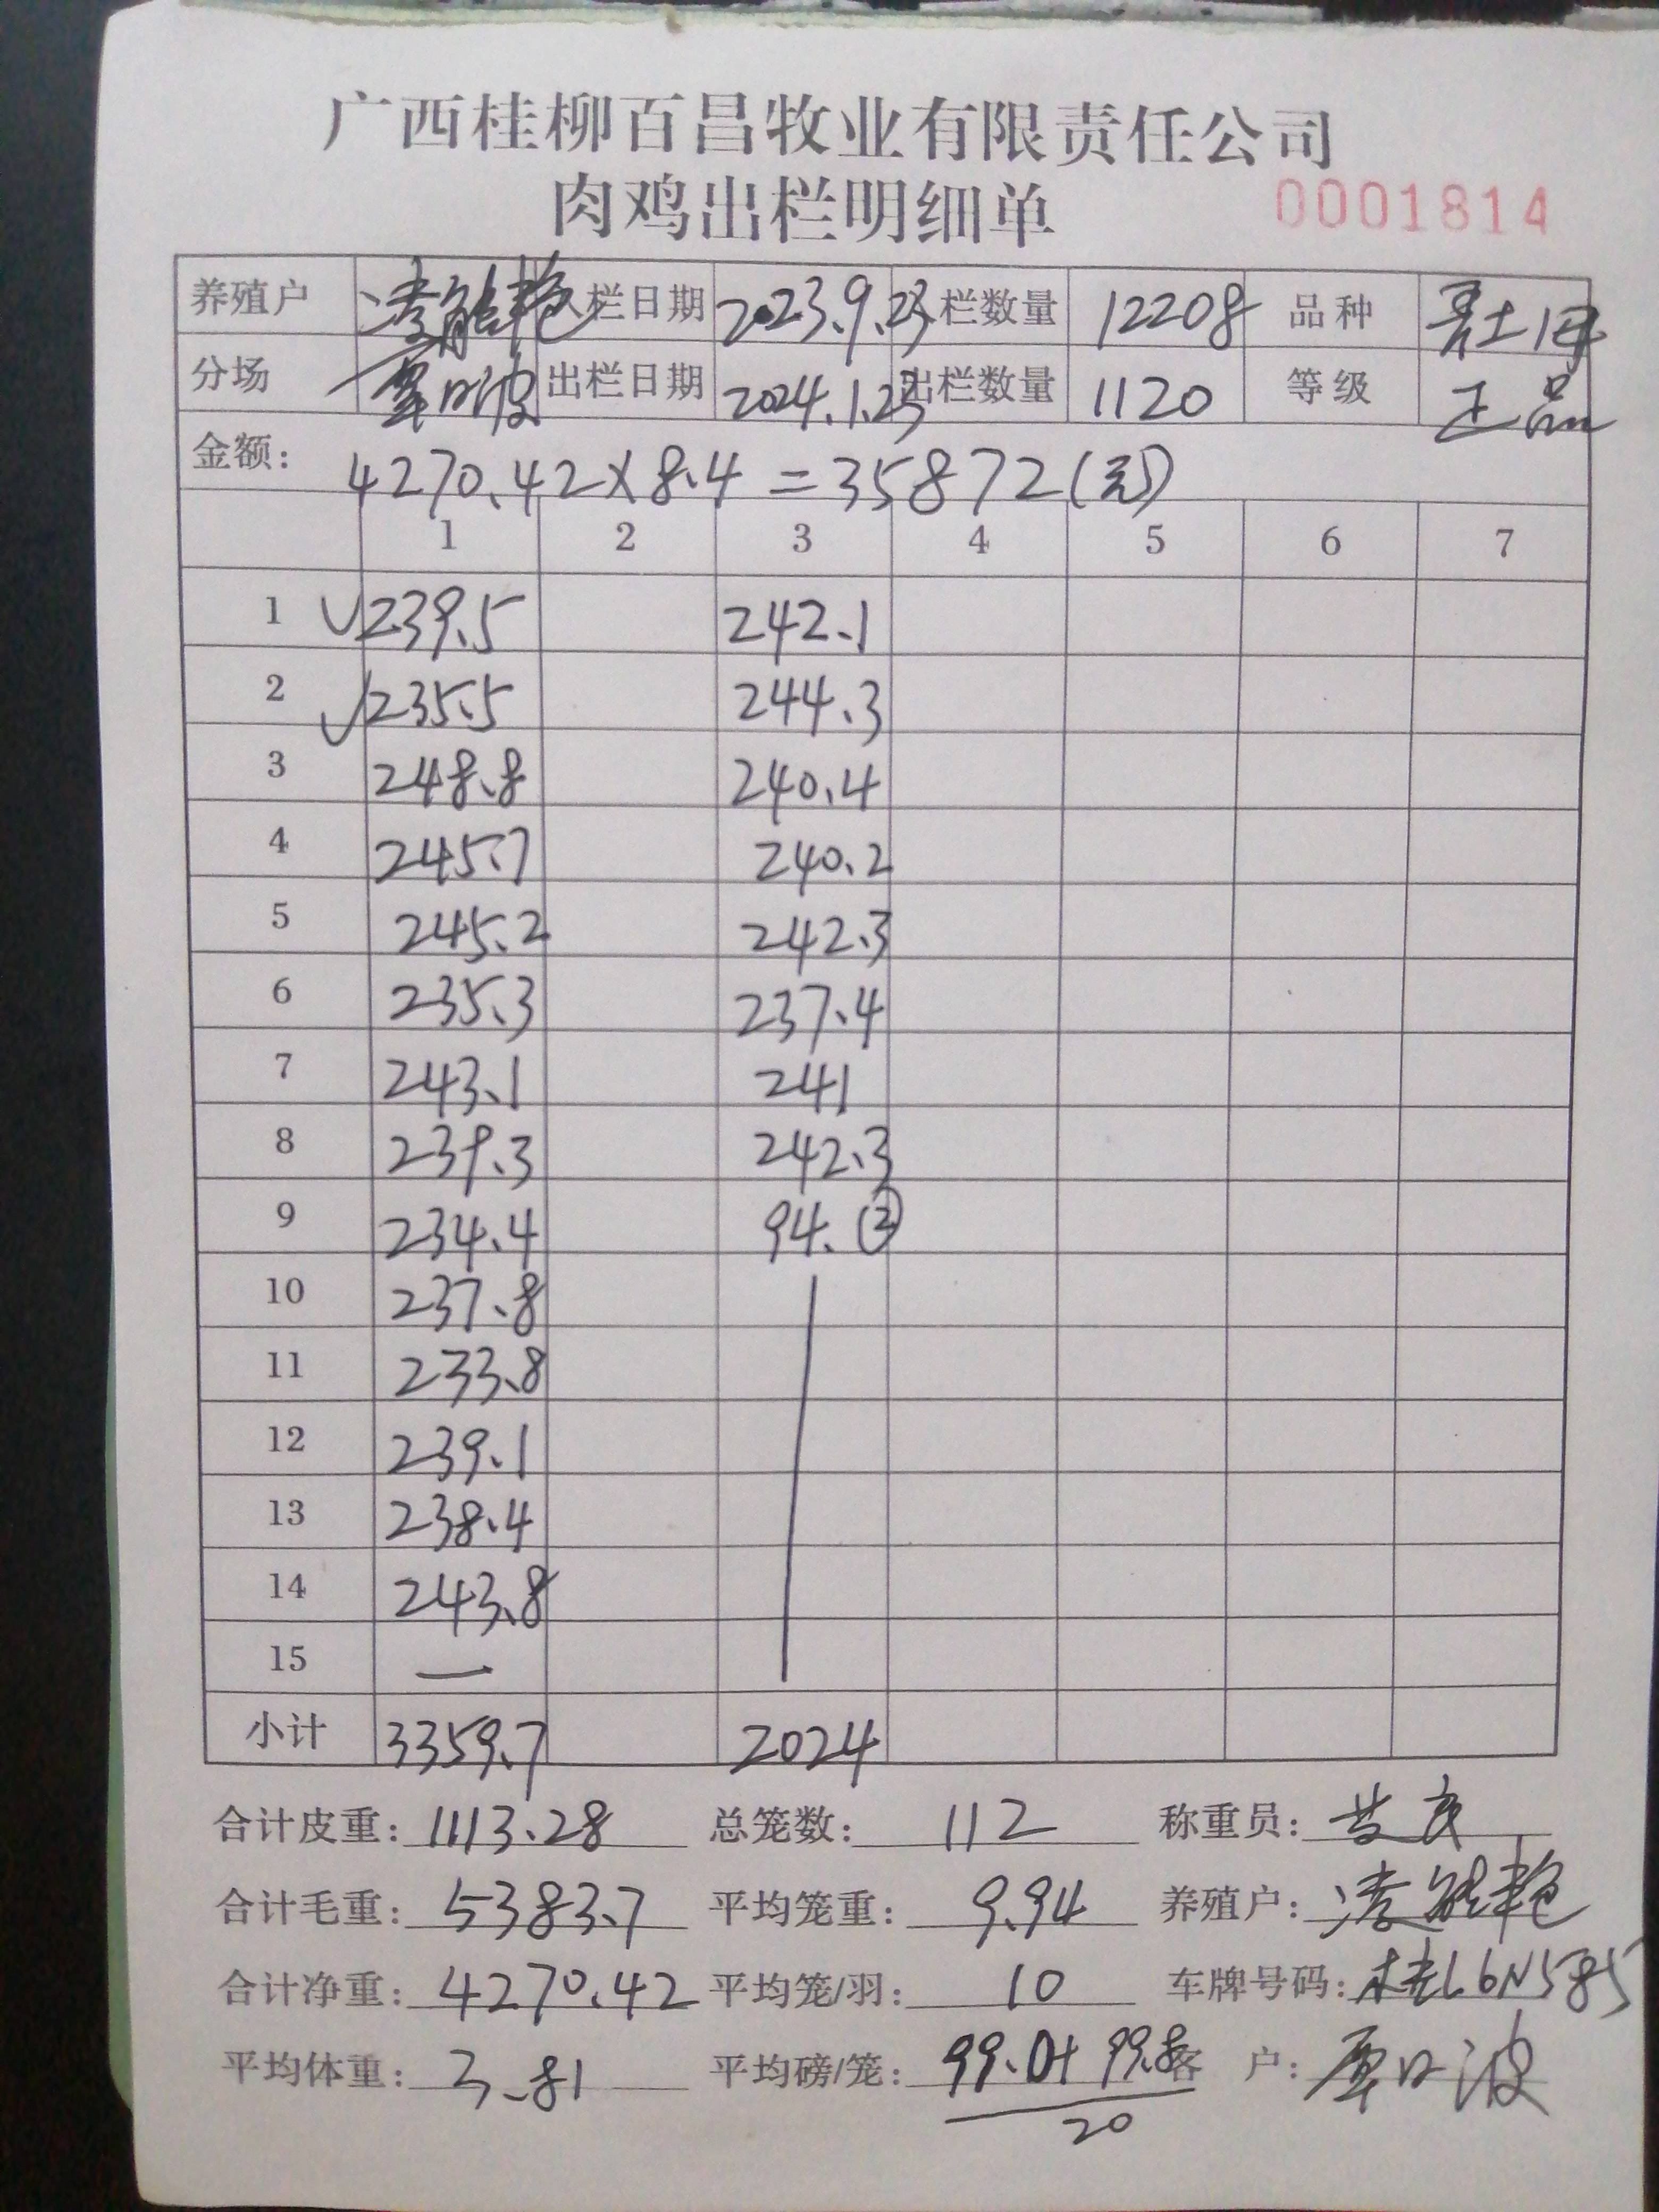 广西桂柳百昌牧业有限责任公司
肉鸡出栏明细单 0001814
养殖户 栏日期 2023.9.23 栏数量 12208 品种
分场 出栏日期 2024.1.23 出栏数量 1120 等级 正品
金额: 4270.42×8.4=35872(元)
1 2 3 4 5 6 7
1 √239.5 242.1
2 √235.5 244.3
3 248.8 240.4
4 245.7 240.2
5 245.2 242.3
6 235.3 237.4
7 243.1 241
8 239.3 242.3
9 234.4 94.②
10 237.8
11 233.8
12 239.1
13 238.4
14 243.8
15 —
小计 3359.7 2024
合计皮重: 1113.28 总笼数: 112 称重员:
合计毛重: 5383.7 平均笼重: 9.94 养殖户:
合计净重: 4270.42 平均笼/羽: 10 车牌号码: 桂L6N585
平均体重: 3.81 平均磅/笼: 99.0+99.8 客户:
20